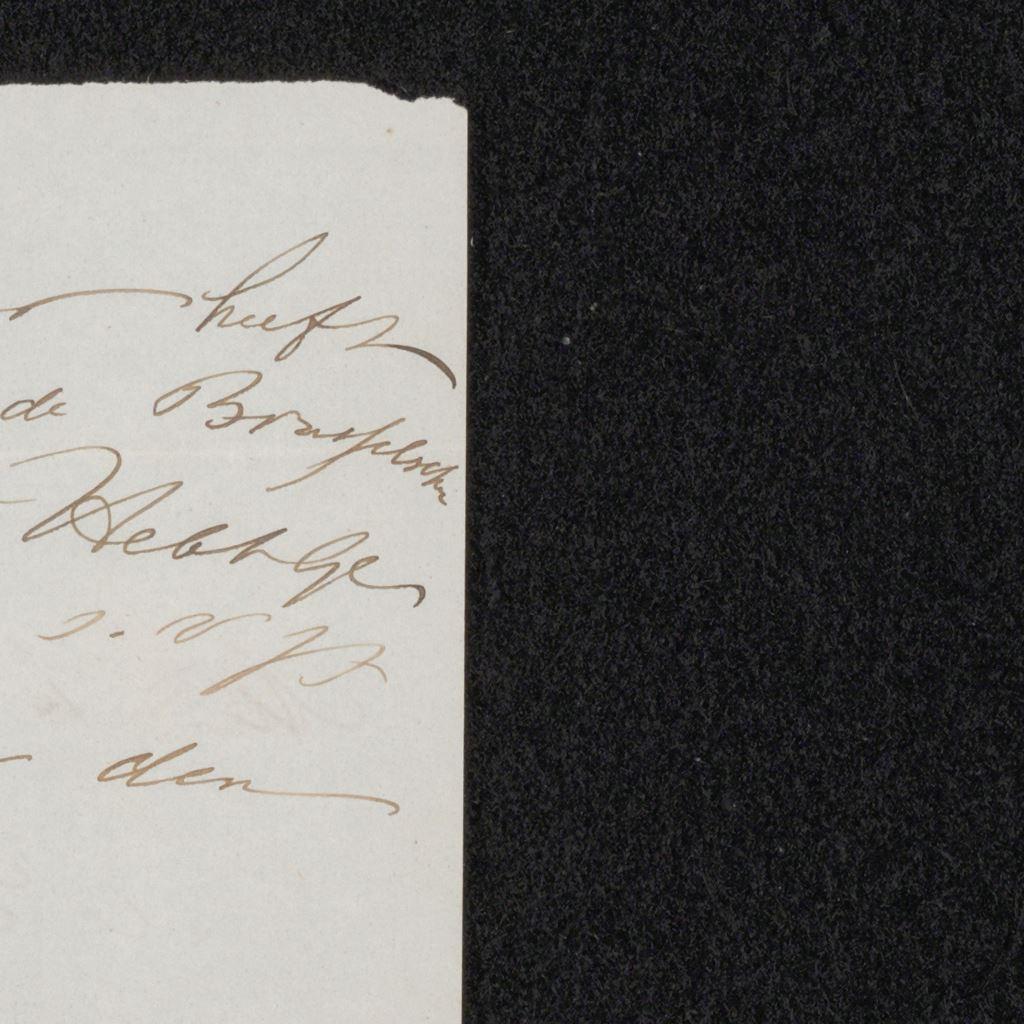 heeft
de Brusselsche
Hebt Ge
s. v. p.
den